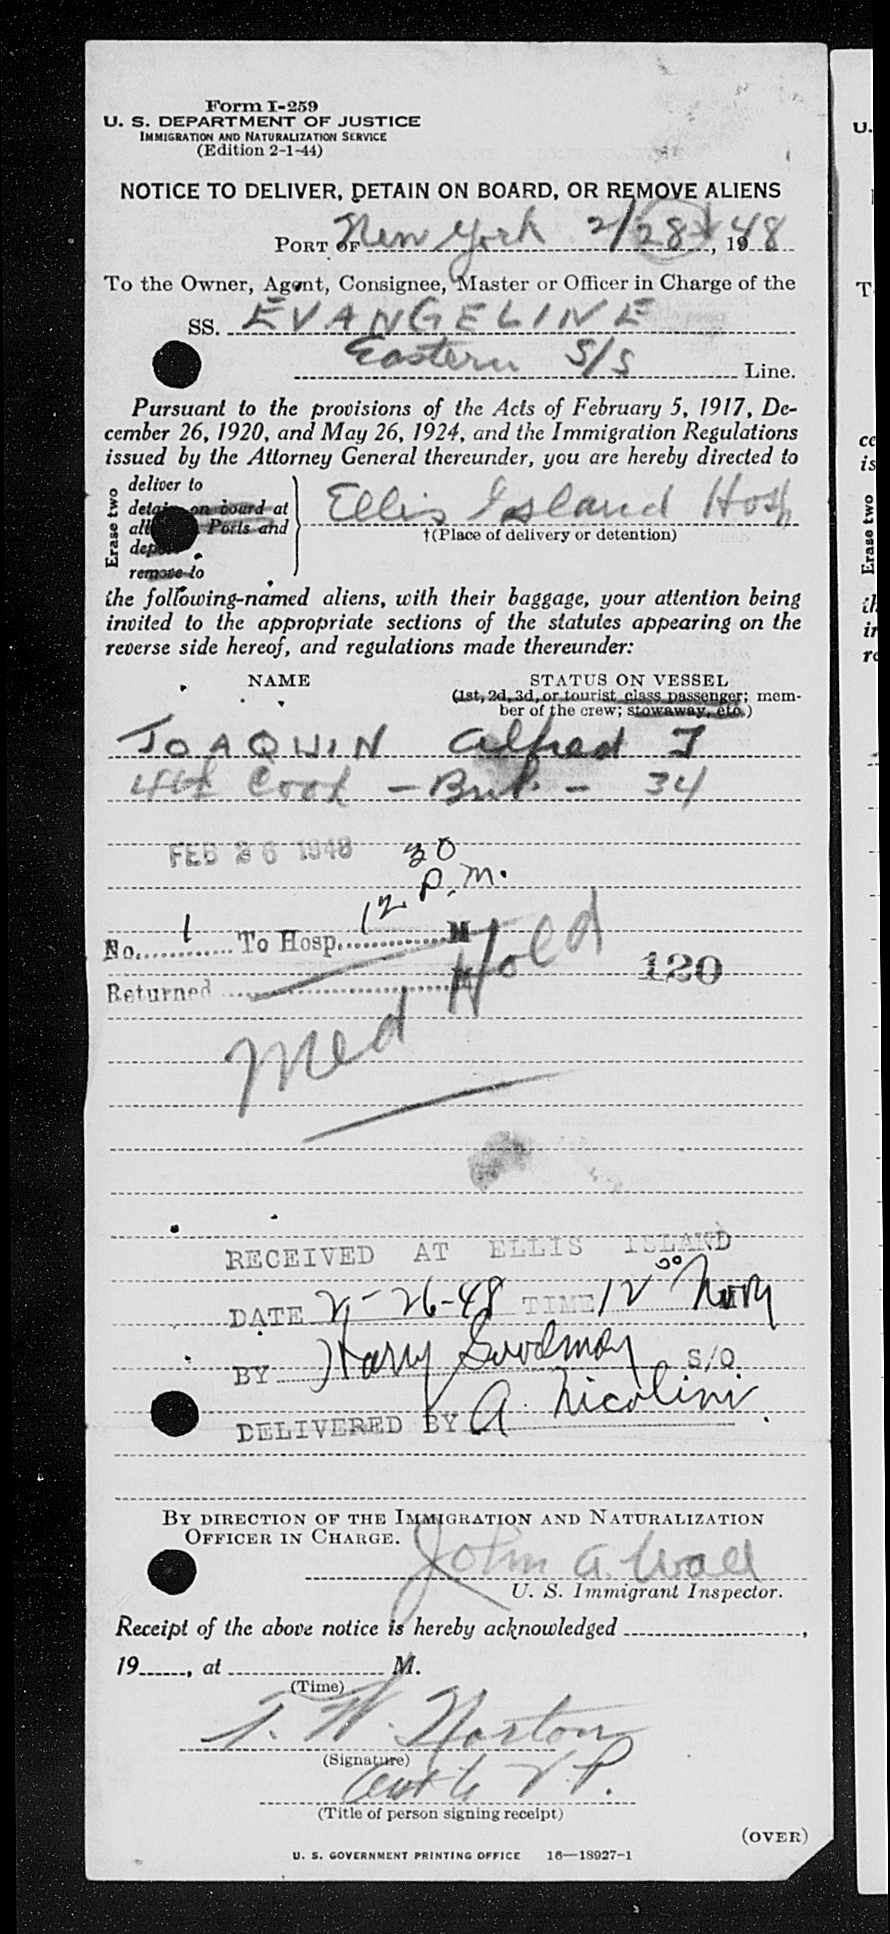 Form I-259
U. S. DEPARTMENT OF JUSTICE
IMMIGRATION AND NATURALIZATION SERVICE
(Edition 2-1-44)
NOTICE TO DELIVER, DETAIN ON BOARD, OR REMOVE ALIENS
PORT OF New York 2/28, 1948
To the Owner, Agent, Consignee, Master or Officer in Charge of the
SS. EVANGELINE
Eastern S/S Line.
Pursuant to the provisions of the Acts of February 5, 1917, De-
cember 26, 1920, and May 26, 1924, and the Immigration Regulations
issued by the Attorney General thereunder, you are hereby directed to
Erase two
deliver to
detain on board at
all Ports and
remove to
Ellis Island Hosp
†(Place of delivery or detention)
the following-named aliens, with their baggage, your attention being
invited to the appropriate sections of the statutes appearing on the
reverse side hereof, and regulations made thereunder:
NAME STATUS ON VESSEL
(1st, 2d, 3d, or tourist class passenger; mem-
ber of the crew; stowaway, etc.)
JOAQUIN Alfred J
4th Cook - Brit. - 34
FEB 26 1948
12 30 P.M.
No. 1 To Hosp. M
Returned M
120
Med Hold
RECEIVED AT ELLIS ISLAND
DATE 2-26-48 TIME 12 00 Noon
BY Harry Goodman S/O
DELIVERED BY A. Nicolini.
BY DIRECTION OF THE IMMIGRATION AND NATURALIZATION
OFFICER IN CHARGE.
John A. Wall
U. S. Immigrant Inspector.
Receipt of the above notice is hereby acknowledged ,
19 , at M.
(Time)
T. W. Norton
(Signature)
V.P.
(Title of person signing receipt)
(OVER)
U. S. GOVERNMENT PRINTING OFFICE 16—18927-1